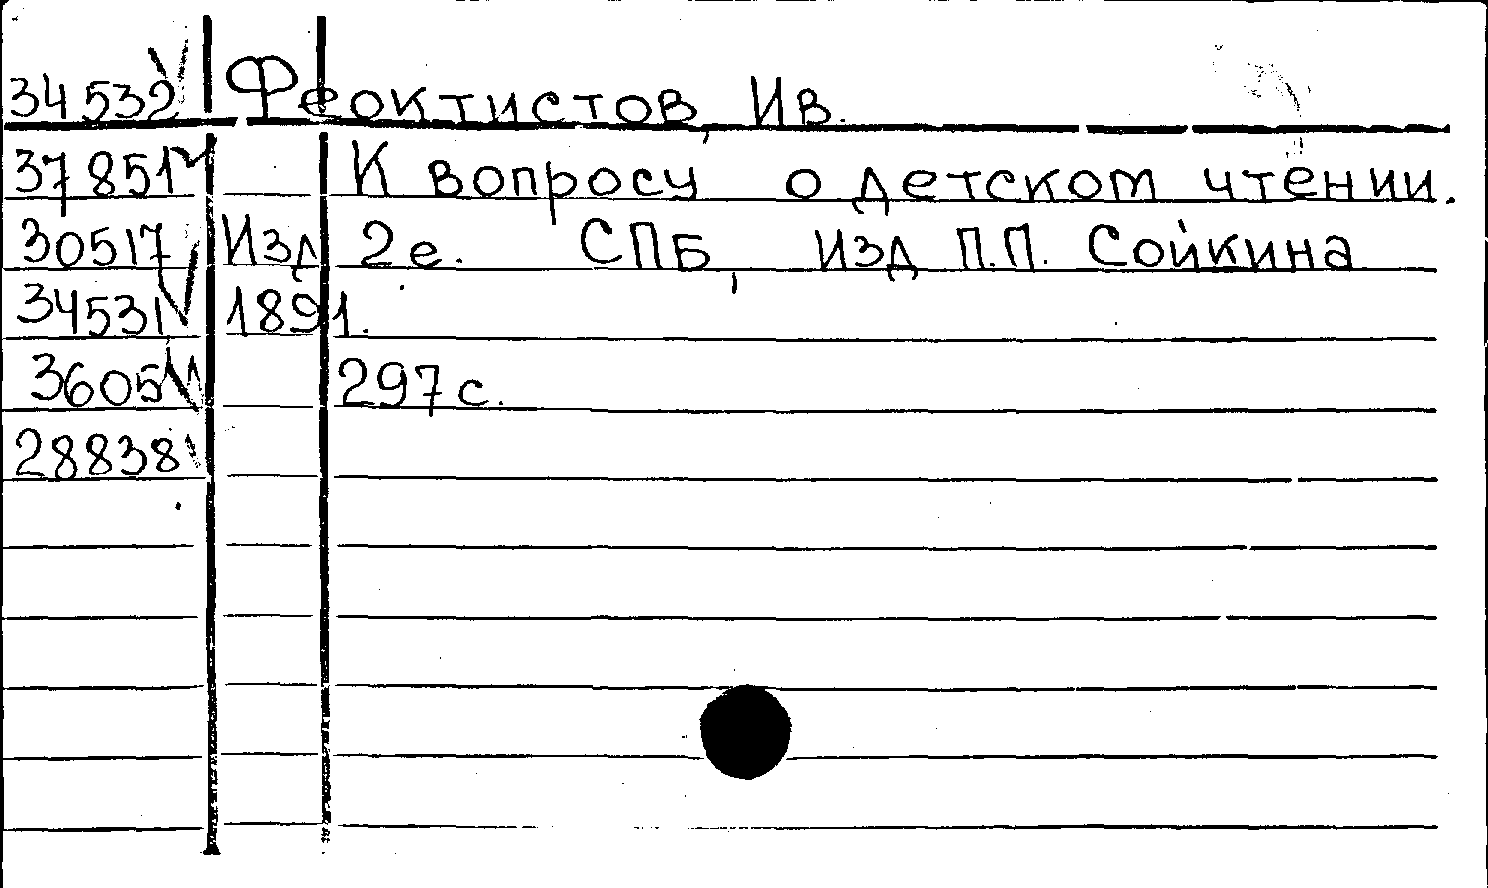 34532 Феоктистов, Ив.
37851 К вопросу о детском чтении.
30517 Изд 2е. СПБ, изд П.П. Сойкина
34531 1891.
3605 297 с.
28838